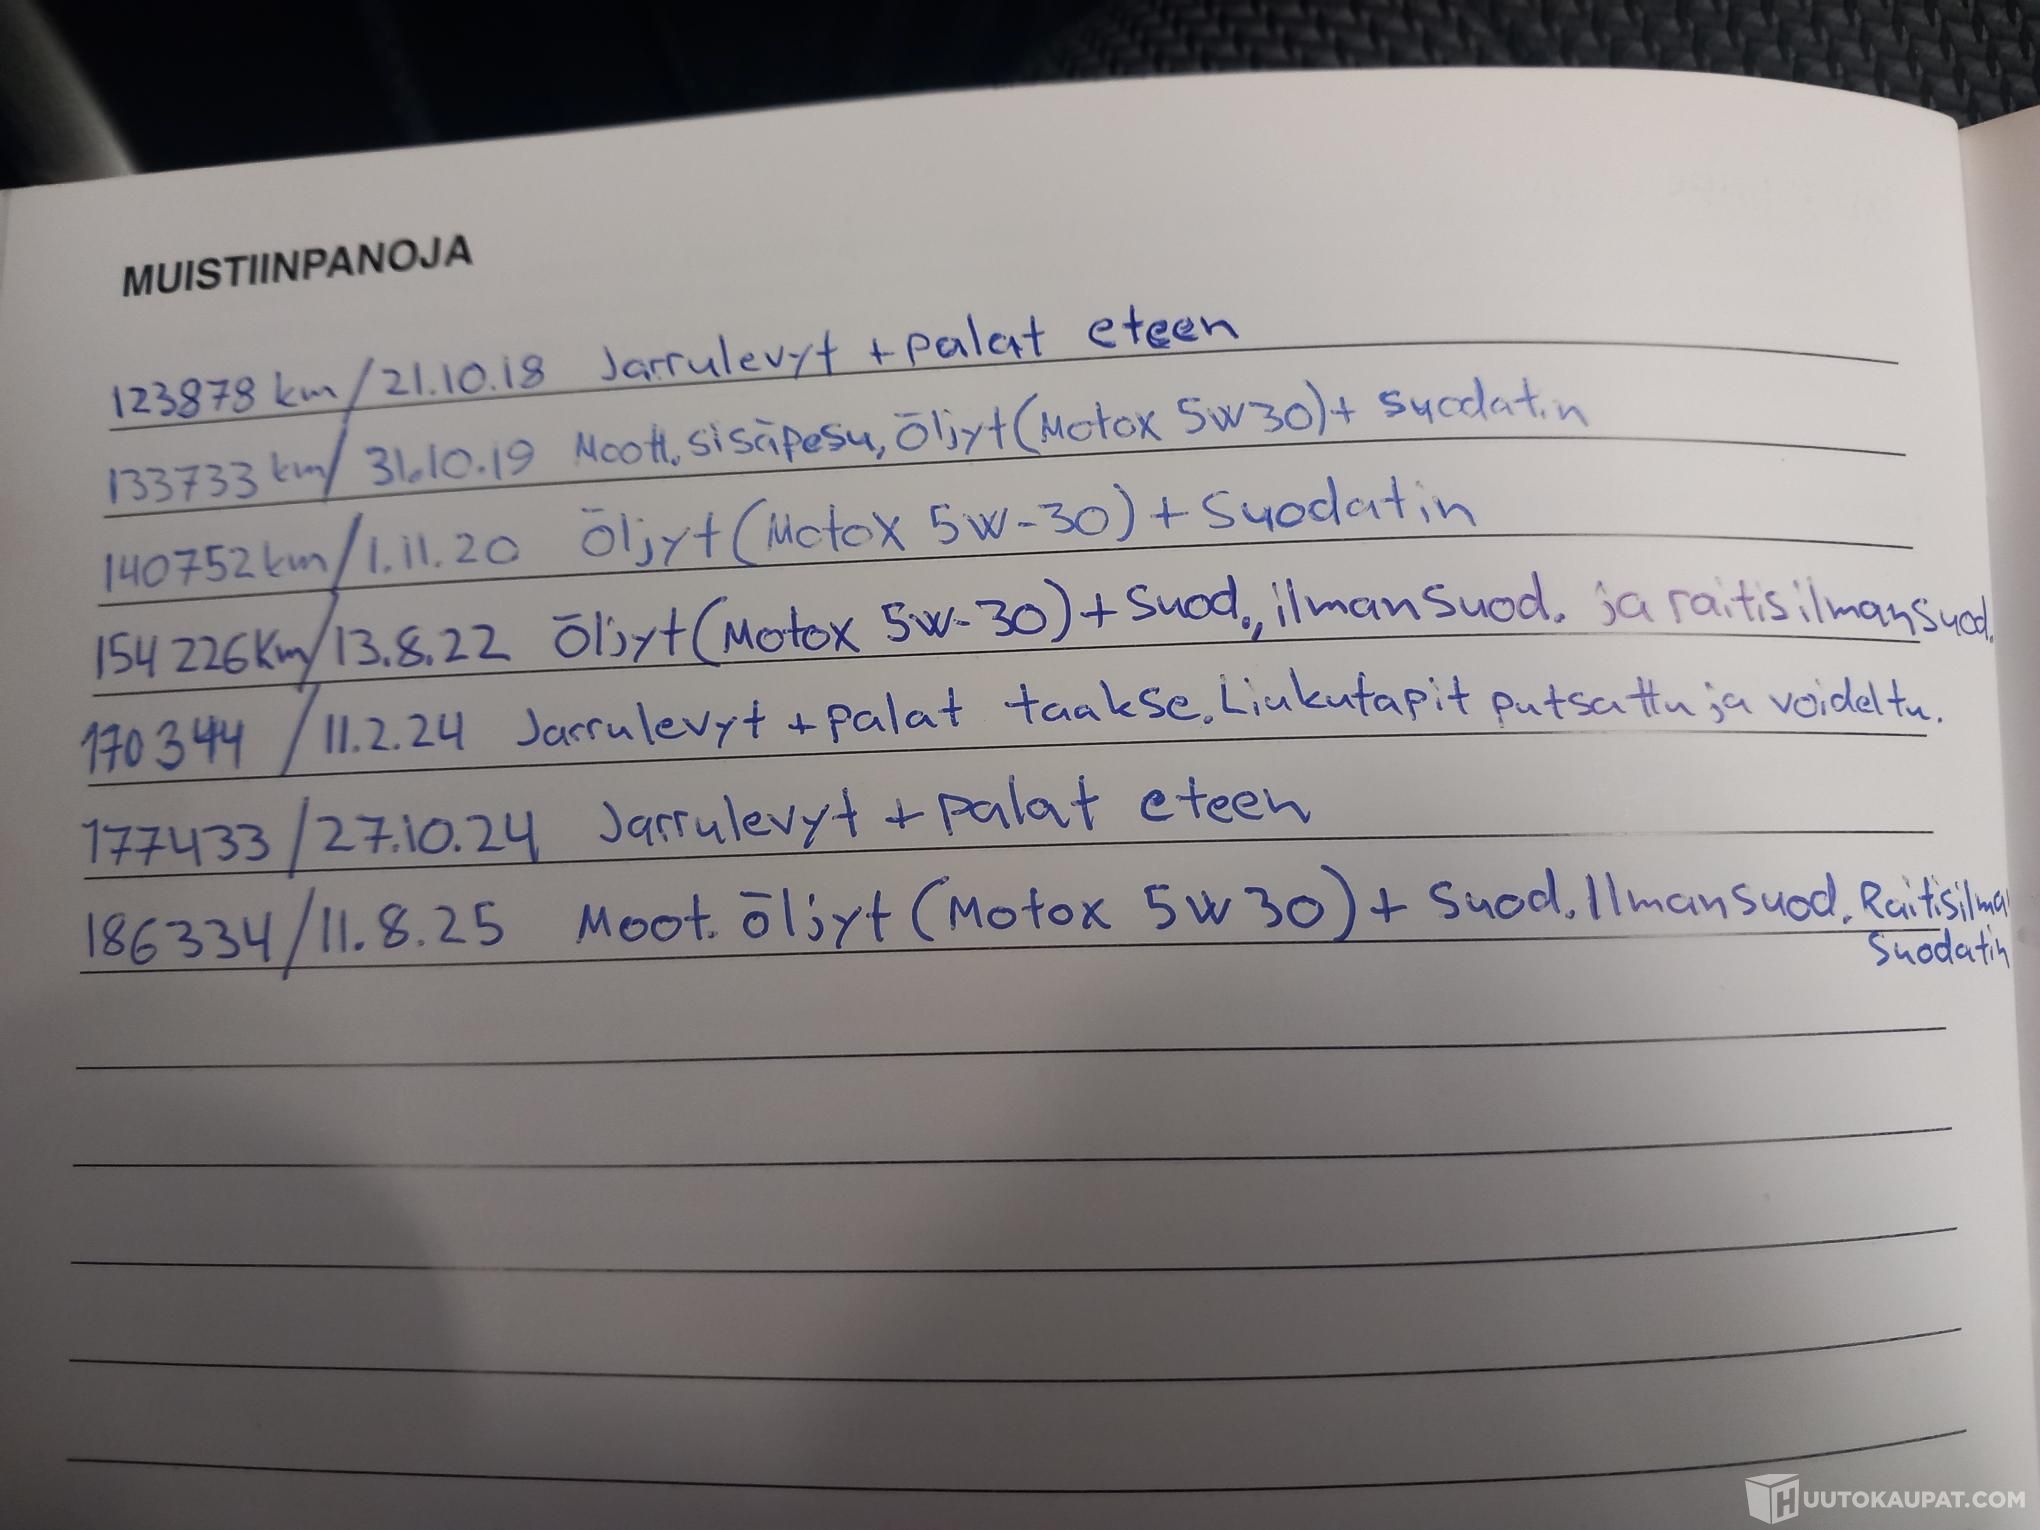 MUISTIINPANOJA
123878 km / 21.10.18 Jarrulevyt + palat eteen
133733 km / 31.10.19 Moott. sisäpesu, Öljyt (Motox 5W30) + suodatin
140752 km / 1.11.20 Öljyt (Motox 5W-30) + Suodatin
154 226 Km / 13.8.22 Öljyt (Motox 5W-30) + Suod., ilmansuod. ja raitisilmansuod.
170 344 / 11.2.24 Jarrulevyt + palat taakse. Liukutapit putsattu ja voideltu.
177433 / 27.10.24 Jarrulevyt + palat eteen
186334 / 11.8.25 Moot. öljyt (Motox 5W30) + Suod. Ilmansuod. Raitisilma
Suodatin
HUUTOKAUPAT.COM